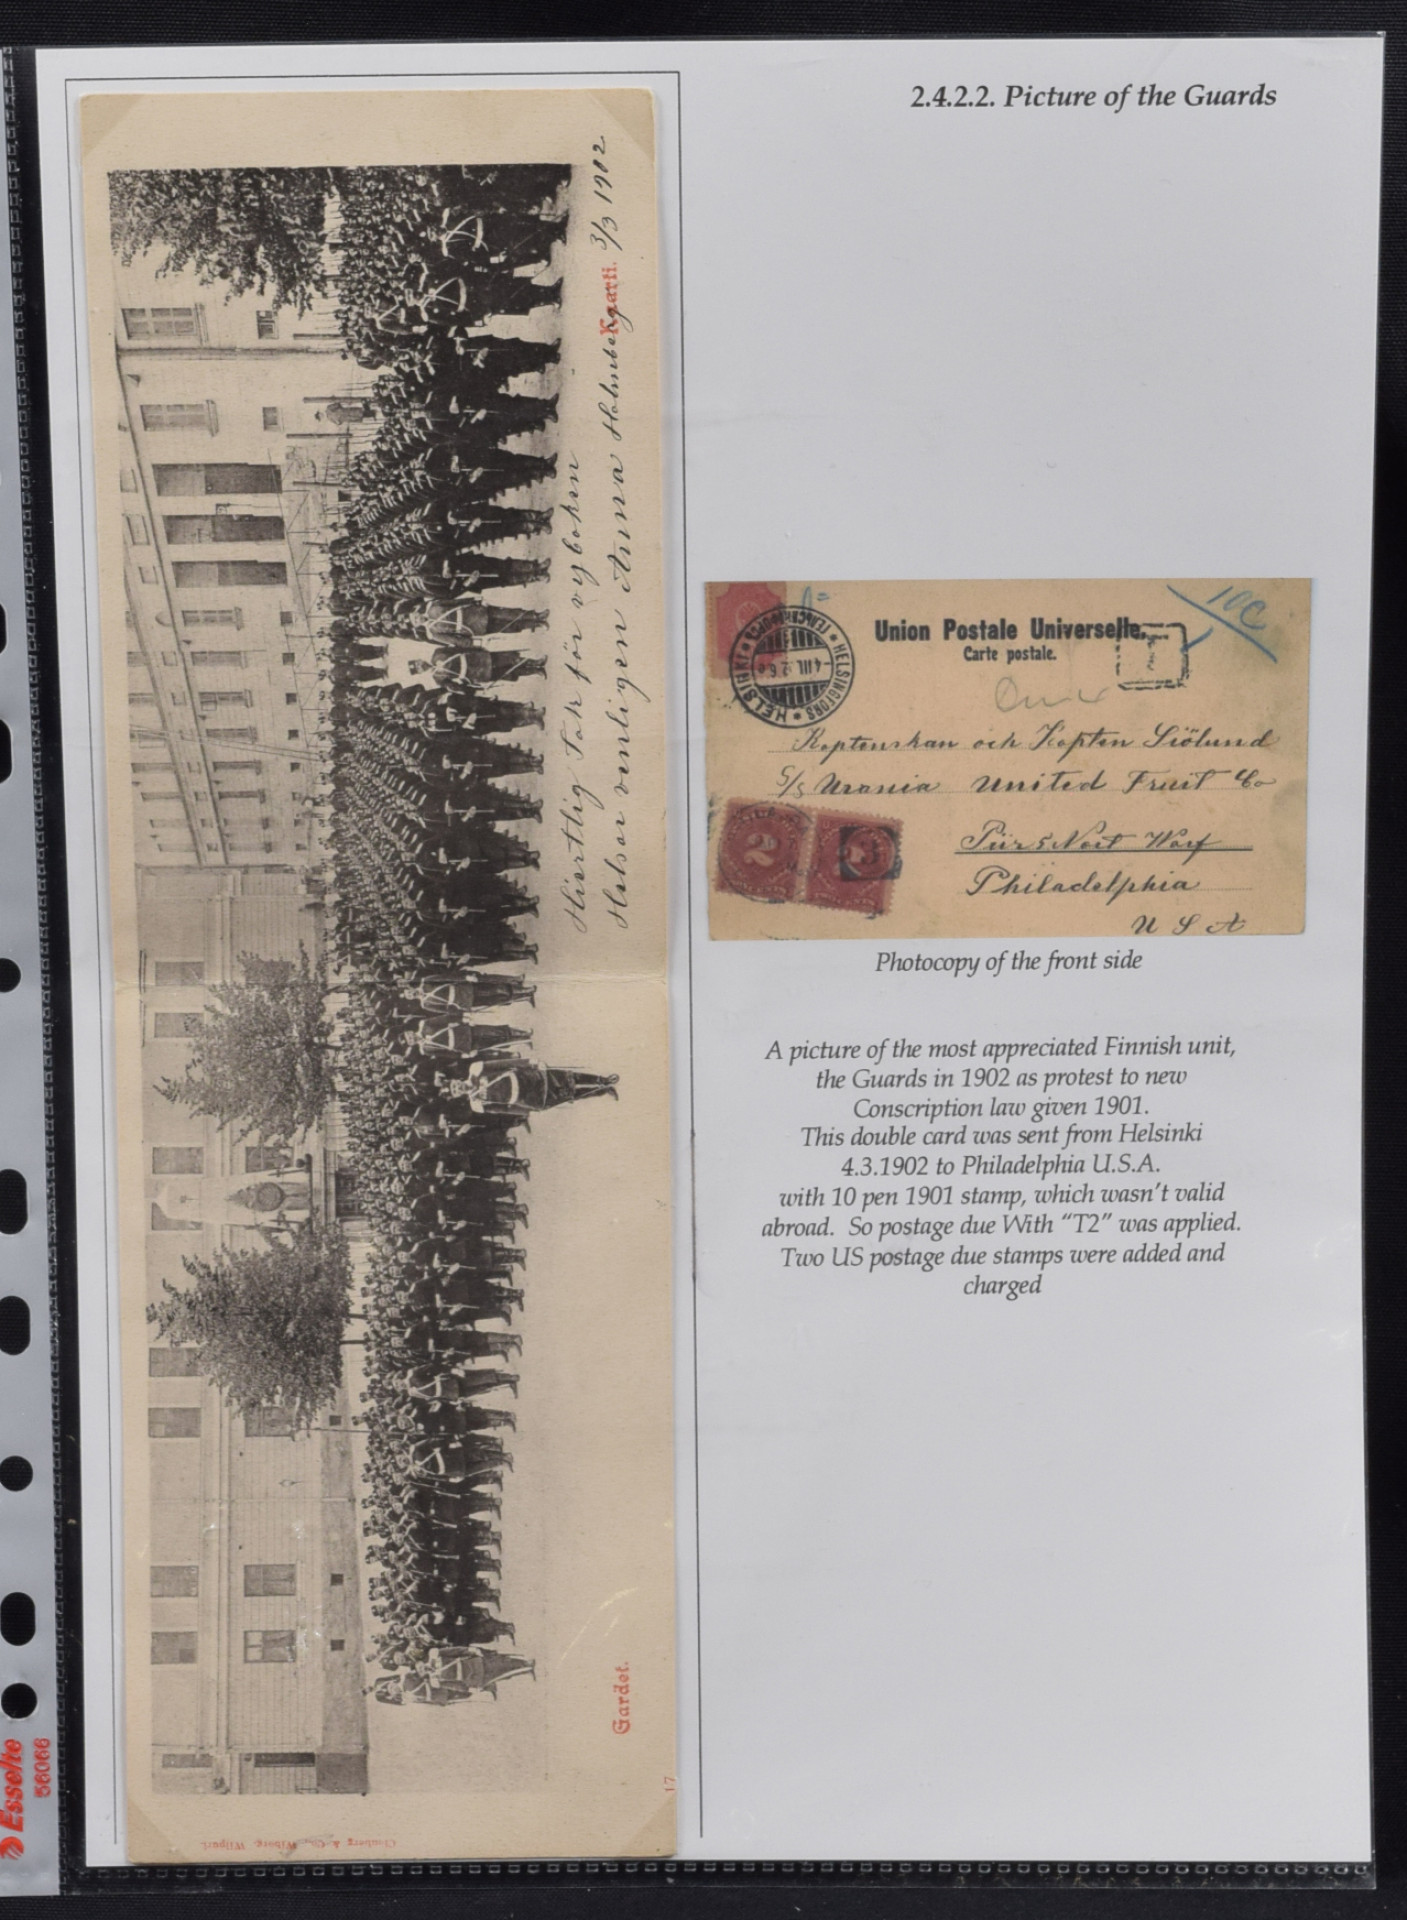 2.4.2.2. Picture of the Guards
Hiertlig Tak för vyboken
Helsar venligen Anna Holmberg 3/3 1902
Kaarti.
Gardet.
17
Clouberg & Co., Wiborg, Wiipuri.
Union Postale Universelle.
Carte postale.
T
10c
HELSINGFORS
HELSINKI
4.III.02
Kaptenskan och Kapten Siölund
S/S Urania United Fruit Co
Pür 5 Nort Warf
Philadelphia
U S A
2
Photocopy of the front side
A picture of the most appreciated Finnish unit,
the Guards in 1902 as protest to new
Conscription law given 1901.
This double card was sent from Helsinki
4.3.1902 to Philadelphia U.S.A.
with 10 pen 1901 stamp, which wasn't valid
abroad. So postage due With “T2” was applied.
Two US postage due stamps were added and
charged
Esselte
56066